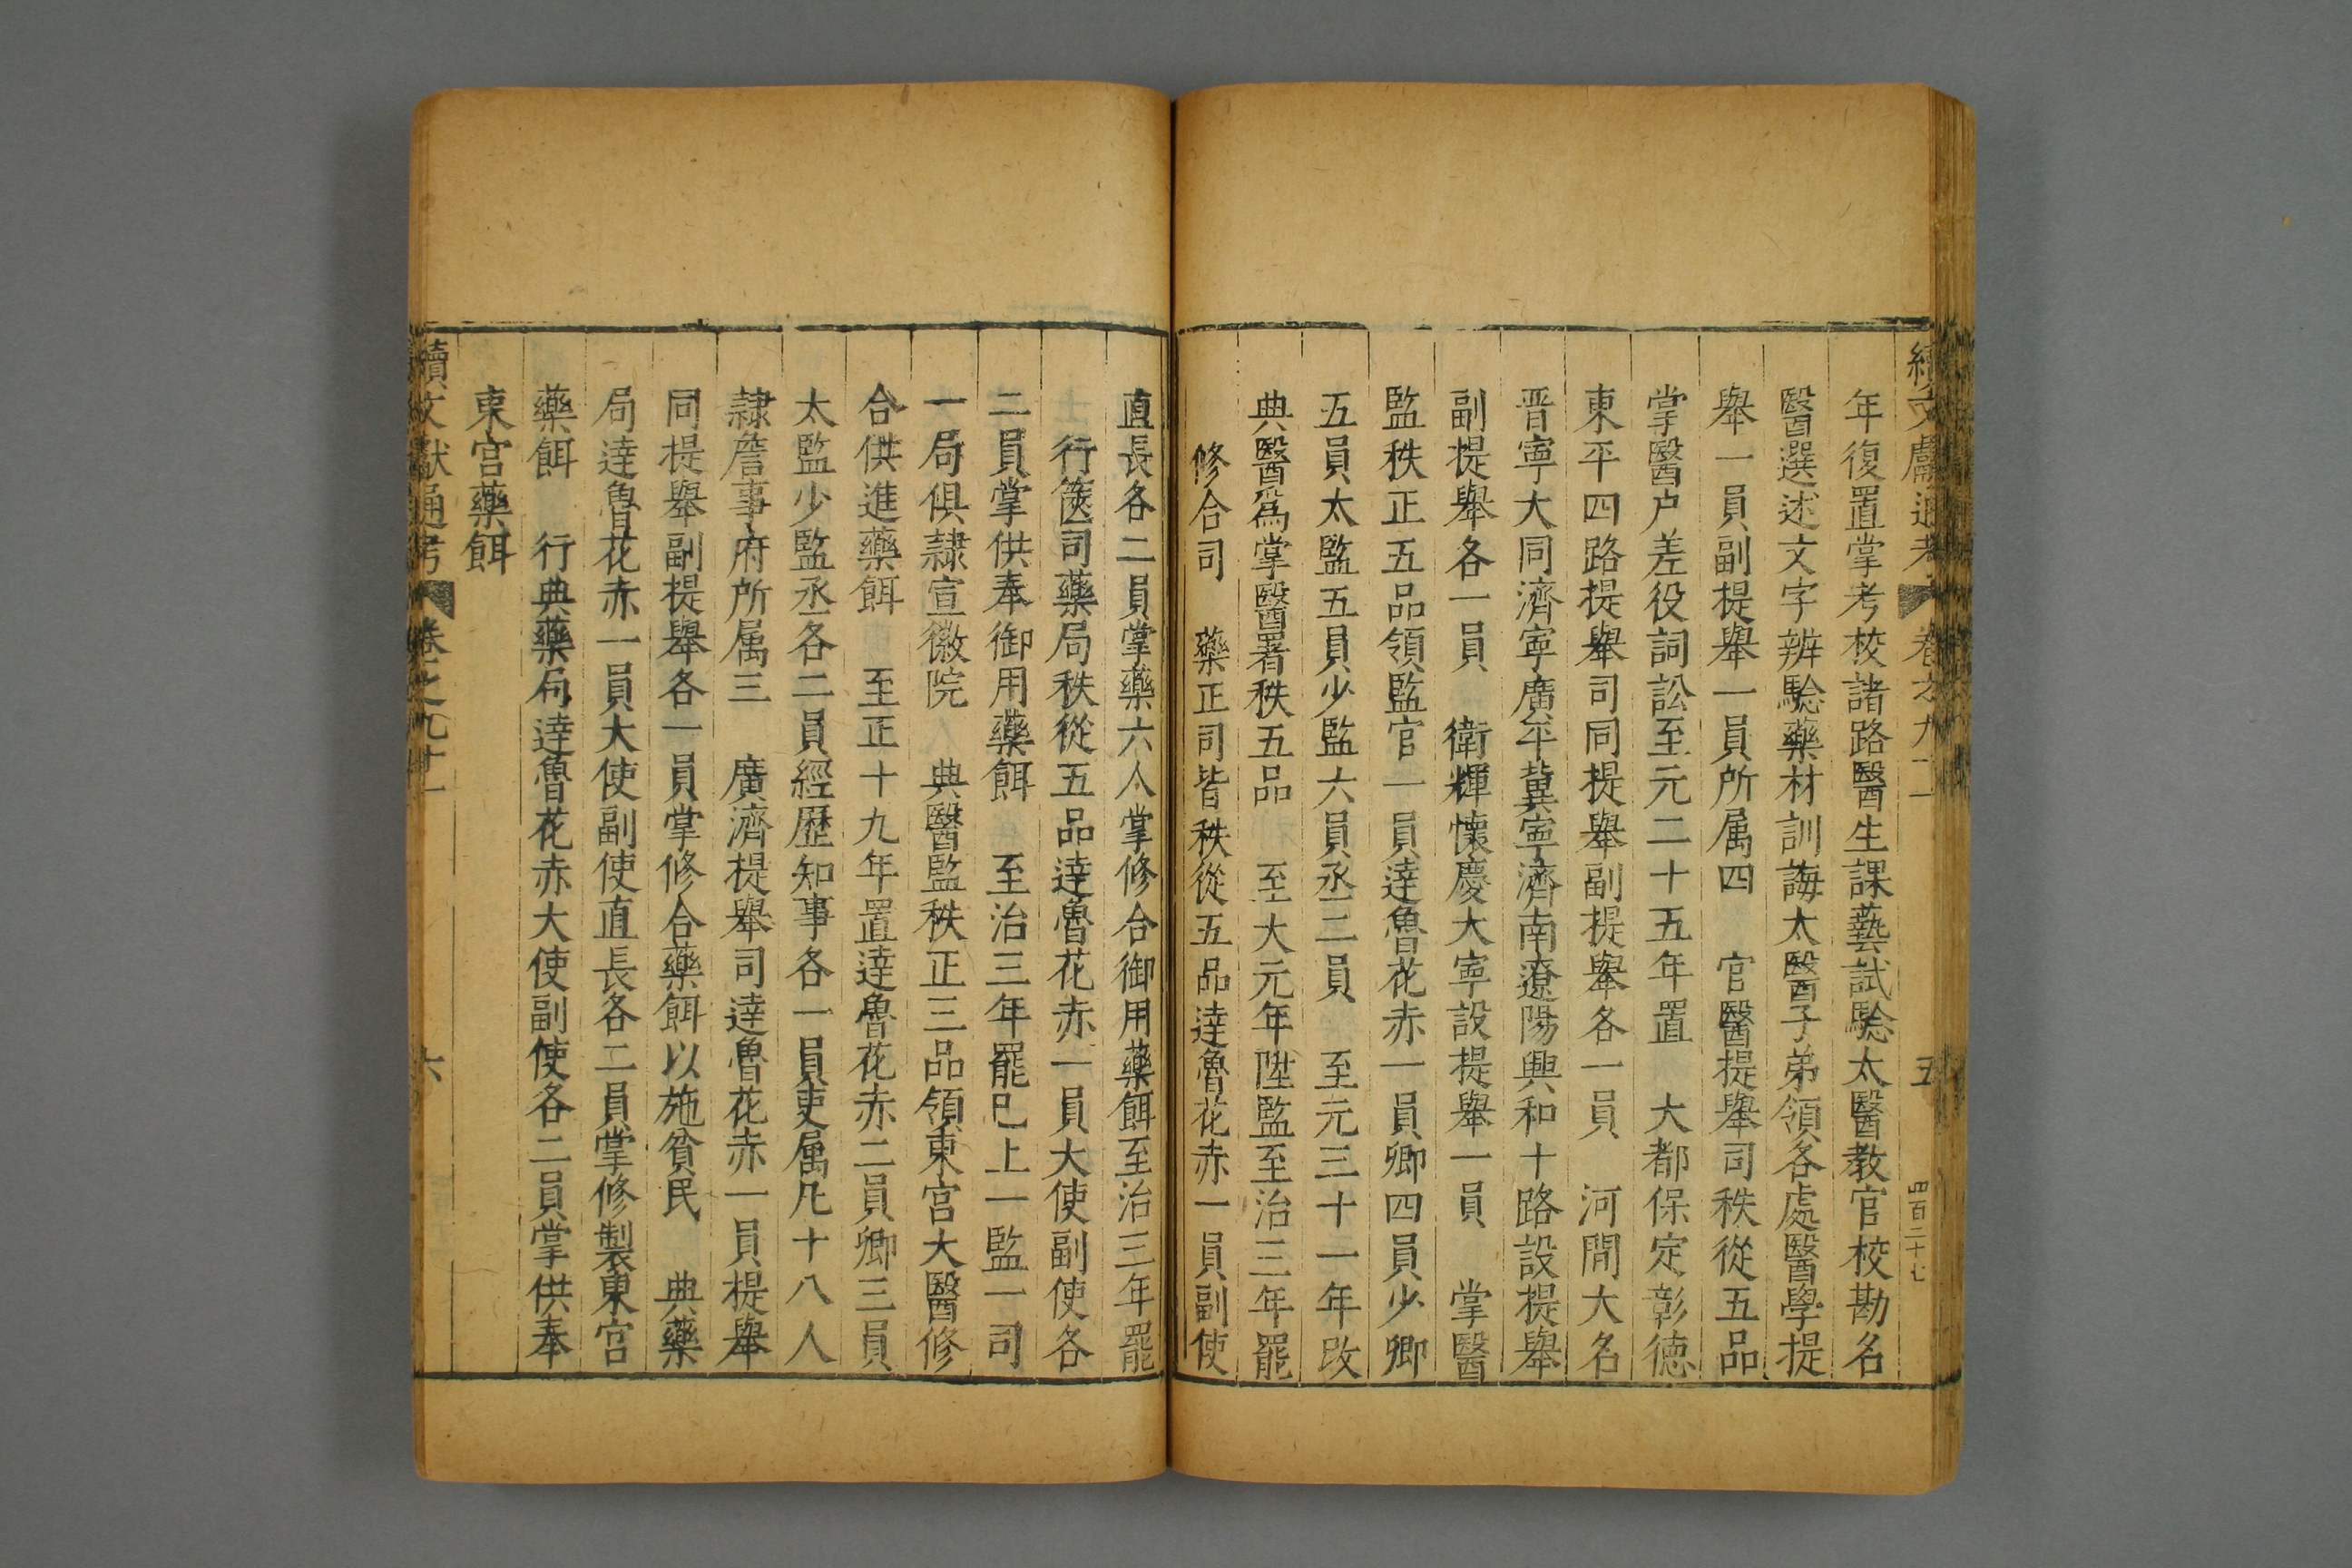 續文獻通考 卷之九十一 五 四百二十七
年復置掌考校諸路醫生課藝試驗太醫教官校勘名
醫選述文字辨驗藥材訓誨太醫子弟領各處醫學提
舉一員副提舉一員所属四 官醫提舉司秩從五品
掌醫户差役詞訟至元二十五年置 大都保定彰德
東平四路提舉司同提舉副提舉各一員 河間大名
晋寧大同濟寧廣平冀寧濟南遼陽興和十路設提舉
副提舉各一員 衛輝懷慶大寧設提舉一員 掌醫
監秩正五品領監官一員達魯花赤一員卿四員少卿
五員太監五員少監六員丞二員 至元三十一年改
典醫爲掌醫署秩五品 至大元年陞監至治三年罷
修合司 藥正司皆秩從五品達魯花赤一員副使
直長各二員掌藥六人掌修合御用藥餌至治三年罷
行篋司藥局秩從五品達魯花赤一員大使副使各
二員掌供奉御用藥餌 至治三年罷巳上一監一司
一局俱隷宣徽院 典醫監秩正三品領東宮大醫修
合供進藥餌 至正十九年置達魯花赤二員卿三員
太監少監丞各二員經歷知事各一員吏属凡十八人
隷詹事府所属三 廣濟提舉司達魯花赤一員提舉
同提舉副提舉各一員掌修合藥餌以施貧民 典藥
局達魯花赤一員大使副使直長各二員掌修製東宮
藥餌 行典藥局達魯花赤大使副使各二員掌供奉
東宮藥餌
續文獻通考 卷之九十一 六